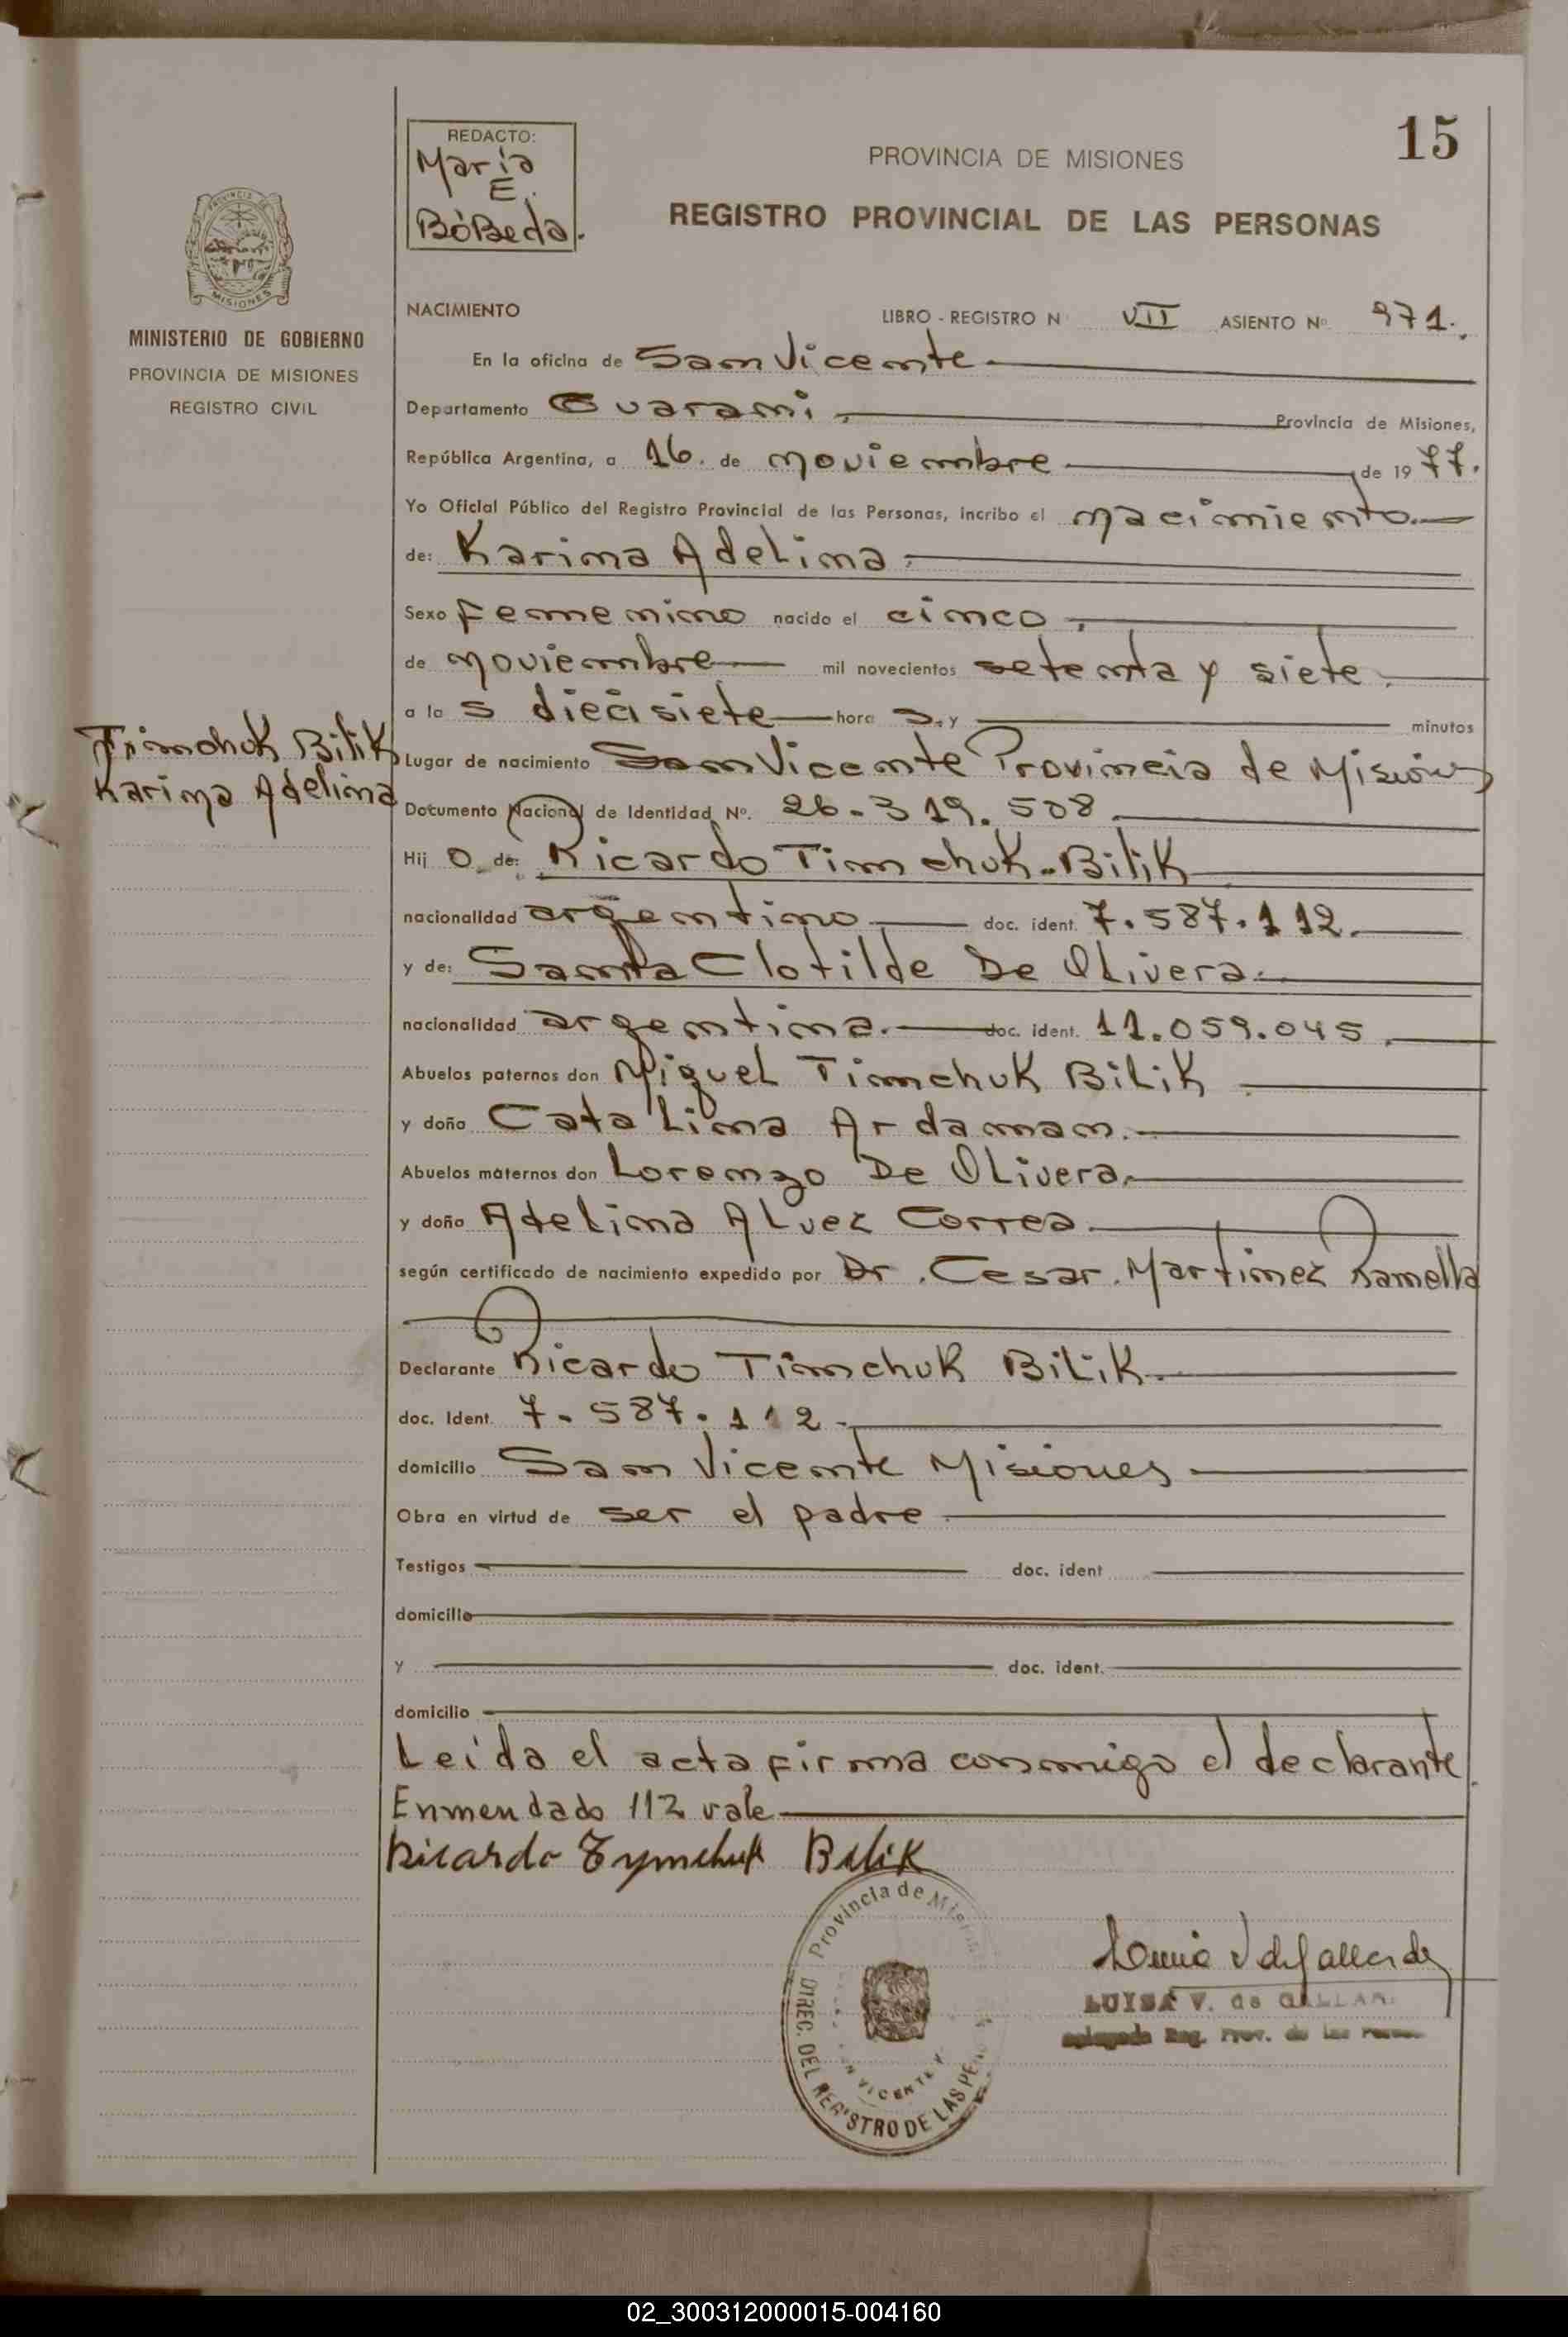 15
REDACTO:
María
E.
BóBeda.
PROVINCIA DE MISIONES
REGISTRO PROVINCIAL DE LAS PERSONAS
PROVINCIA DE
MISIONES
MINISTERIO DE GOBIERNO
PROVINCIA DE MISIONES
REGISTRO CIVIL
NACIMIENTO LIBRO - REGISTRO N VII ASIENTO Nº 971.
En la oficina de San Vicente
Departamento Guarani, Provincia de Misiones,
República Argentina, a 16. de noviembre de 1977.
Yo Oficial Público del Registro Provincial de las Personas, incribo el nacimiento.
de: Karina Adelina.
Sexo femenino nacido el cinco,
de noviembre mil novecientos setenta y siete.
a la s diecisiete hora s, y minutos
Timchuk Bilik
Karina Adelina
Lugar de nacimiento San Vicente Provincia de Misiones
Documento Nacional de Identidad Nº. 26-319.508.
Hij o de: Ricardo Timchuk-Bilik
nacionalidad argentino doc. ident. 7.587.112.
y de: Santa Clotilde De Olivera.
nacionalidad argentina. doc. ident. 11.059.045.
Abuelos paternos don Miguel Timchuk Bilik
y doña Catalina Ardaman.
Abuelos maternos don Lorenzo De Olivera,
y doña Adelina Alvez Correa.
según certificado de nacimiento expedido por Dr. Cesar Martinez Ramella
Declarante Ricardo Timchuk Bilik.
doc. Ident. 7.587.112.
domicilio San Vicente Misiones
Obra en virtud de ser el padre
Testigos doc. ident
domicilio
y doc. ident.
domicilio
Leída el acta firma conmigo el declarante
Enmendado 112 vale
Ricardo Tymchuk Bilik
Provincia de
DIREC. DEL REGISTRO DE LAS
VICENTE
LUISA V. de
Reg. Prov. de las
02_300312000015-004160